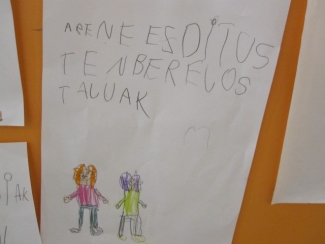 ARENE ESDITUS
TENBERELOS
TALUAK
iAK